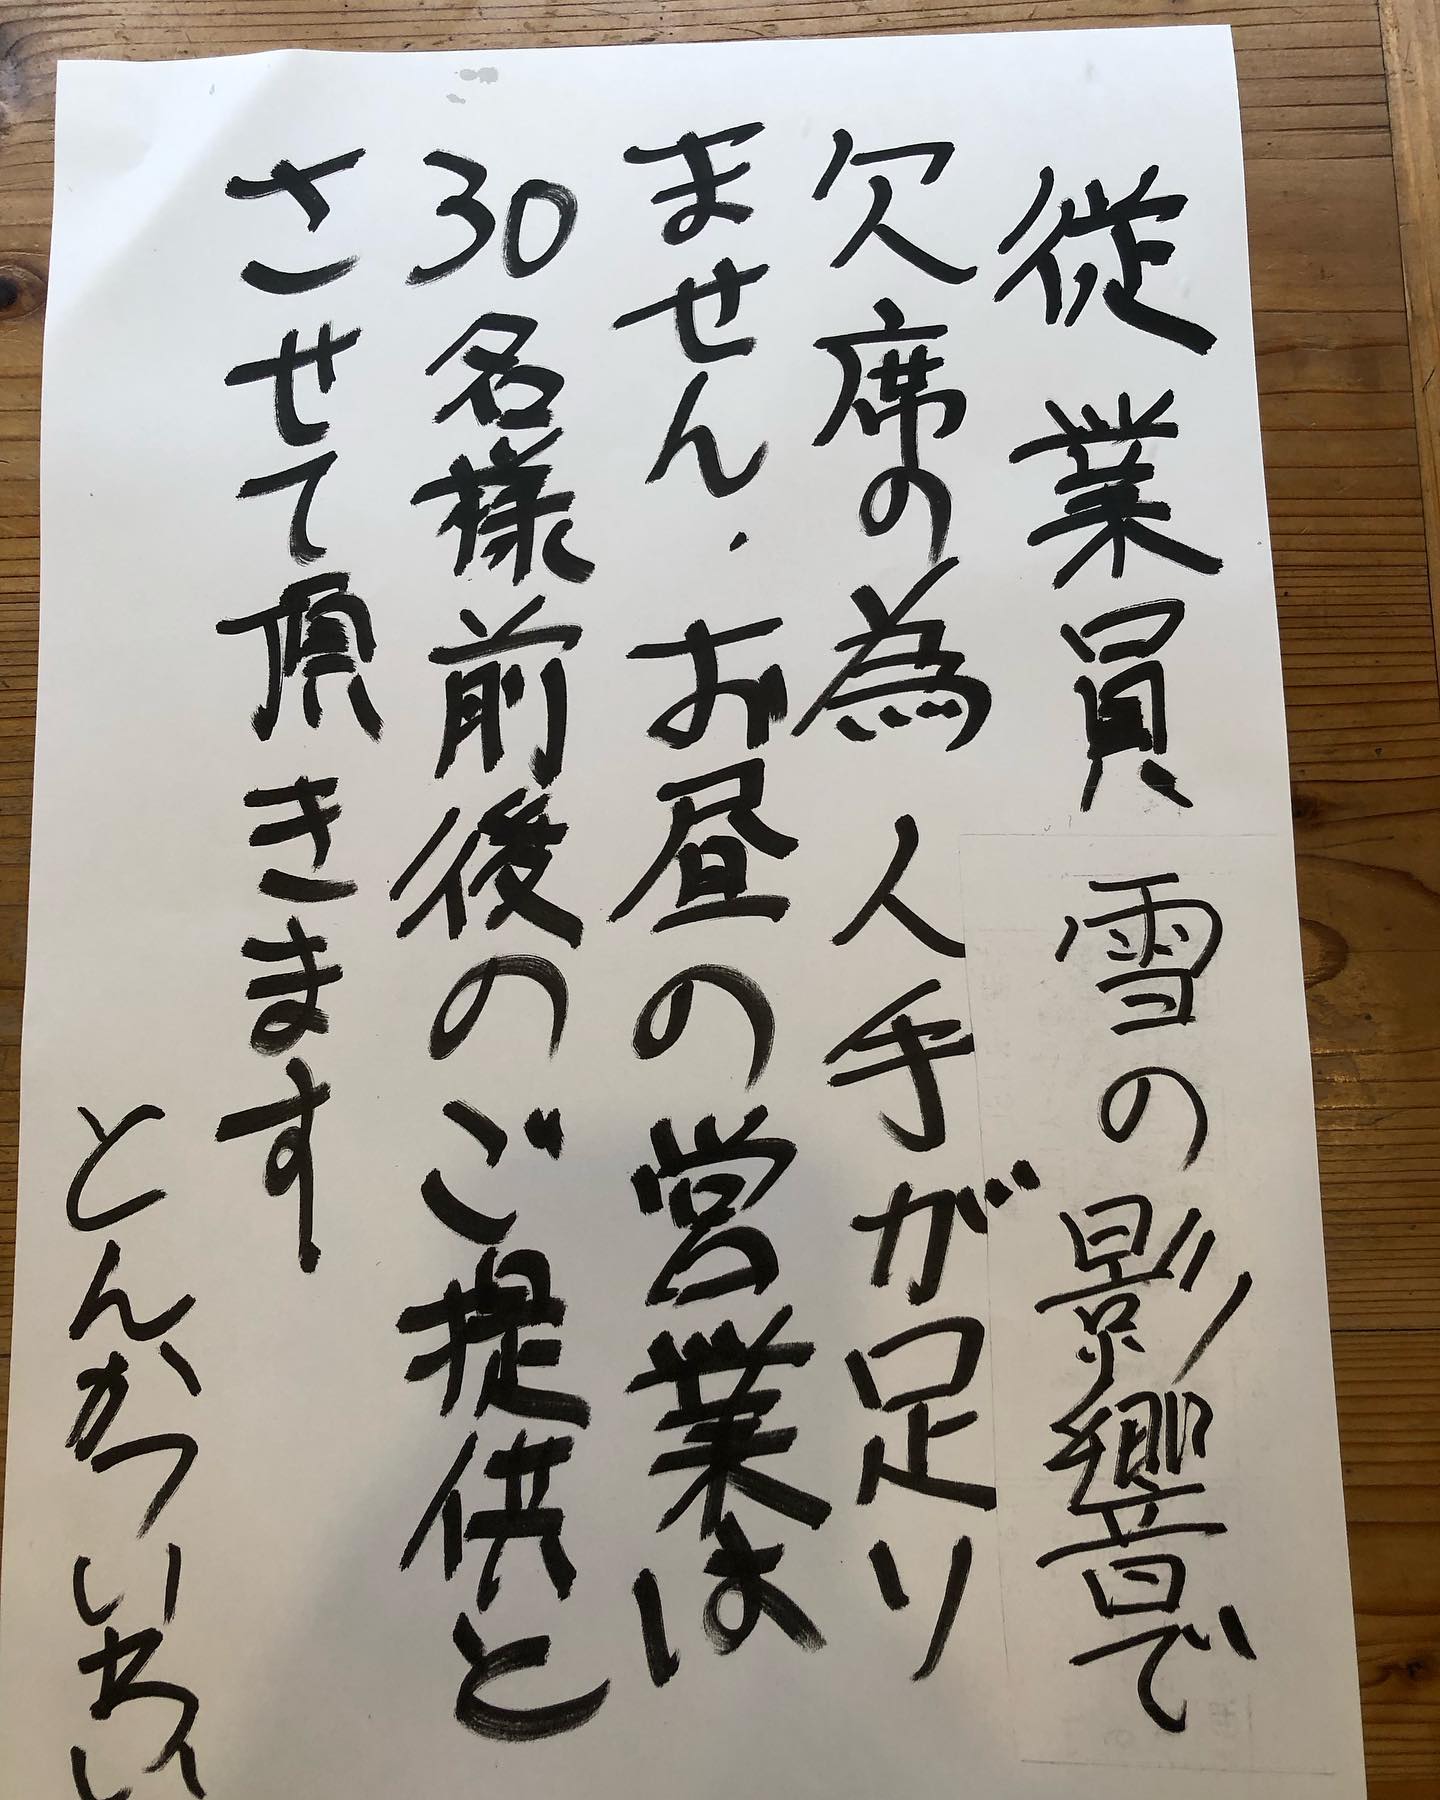 従業員 雪の影響で
欠席の為 人手が足り
ません．お昼の営業は
30名様前後のご提供と
させて頂きます
とんかつ